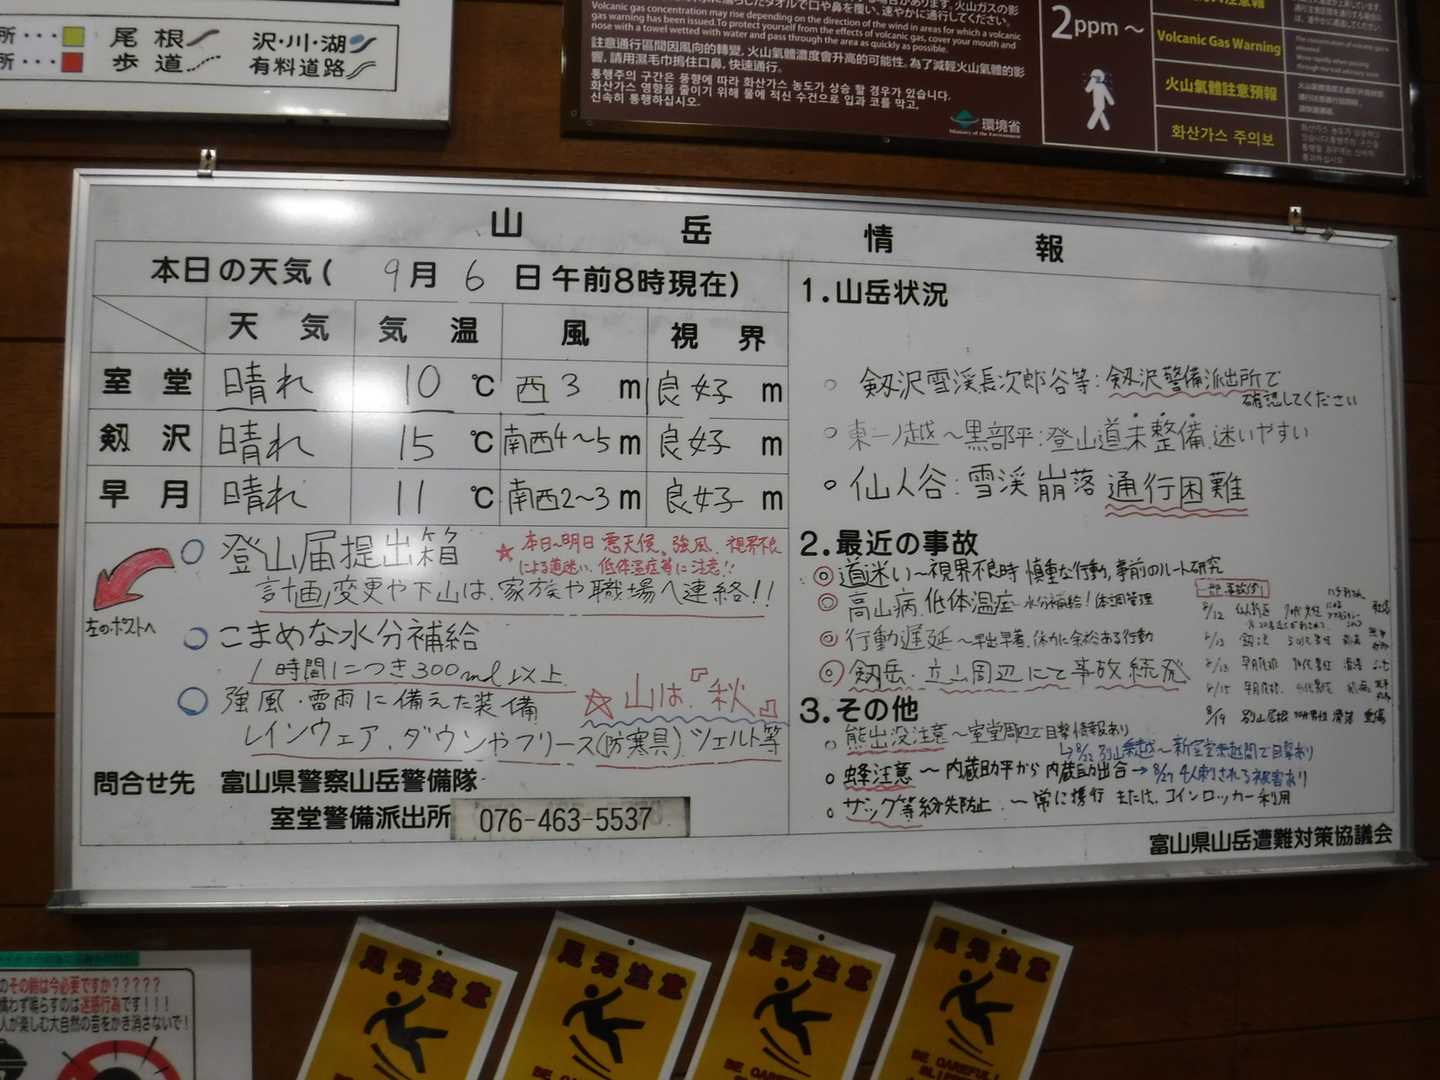 所・・・ 尾根 沢・川・湖
所・・・ 歩道 有料道路
Volcanic gas concentration may rise depending on the direction of the wind in areas for which a volcanic
gas warning has been issued.To protect yourself from the effects of volcanic gas, cover your mouth and
nose with a towel wetted with water and pass through the area as quickly as possible.
註意通行區間因風向的轉變,火山氣體濃度會升高的可能性。為了減輕火山氣體的影
響,請用濕毛巾摀住口鼻,快速通行。
통행주의 구간은 풍향에 따라 화산가스 농도가 상승 할 경우가 있습니다.
화산가스 영향을 줄이기 위해 물에 적신 수건으로 입과 코를 막고,
신속히 통행하십시오.
環境省
Ministry of the Environment
2ppm～
Volcanic Gas Warning
火山氣體註意預報
화산가스 주의보
山岳情報
本日の天気( 9月 6日 午前8時現在)
天気 気温 風 視界
室堂 晴れ 10 ℃ 西 3 m 良好 m
剱沢 晴れ 15 ℃ 南西4〜5 m 良好 m
早月 晴れ 11 ℃ 南西2〜3 m 良好 m
○ 登山届提出箱
計画変更や下山は、家族や職場へ連絡!!
左のポストへ
☆ 本日〜明日 悪天候、強風、視界不良
による道迷い、低体温症等に注意!!
○ こまめな水分補給
1時間につき300ml以上
○ 強風・雷雨に備えた装備
レインウェア、ダウンやフリース(防寒具)、ツェルト等
☆ 山は『秋』
問合せ先 富山県警察山岳警備隊
室堂警備派出所 076-463-5537
1.山岳状況
○ 剱沢雪渓長次郎谷等:剱沢警備派出所で
確認してください
○ 東一ノ越〜黒部平:登山道未整備、迷いやすい
○ 仙人谷:雪渓崩落 通行困難
2.最近の事故
◎ 道迷い〜視界不良時 慎重な行動、事前のルート研究
◎ 高山病、低体温症〜水分補給!体調管理
◎ 行動遅延〜早出早着、体力に余裕ある行動
◎ 剱岳・立山周辺にて事故続発
8/19 別山尾根 男性 滑落 重傷
3.その他
○ 熊出没注意〜室堂周辺で目撃情報あり
→8/22 別山乗越〜新室堂乗越間で目撃あり
○ 蜂注意〜内蔵助平から内蔵助出合→8/27 4人刺される被害あり
○ ザック等紛失防止 〜常に携行 または、コインロッカー利用
富山県山岳遭難対策協議会
その鈴は今必要ですか?????
構わず鳴らすのは迷惑行為です!!!
人が楽しむ大自然の音をかき消さないで!
足元注意
BE CAREFUL!
足元注意
BE CAREFUL!
足元注意
BE CAREFUL!
足元注意
BE CAREFUL!